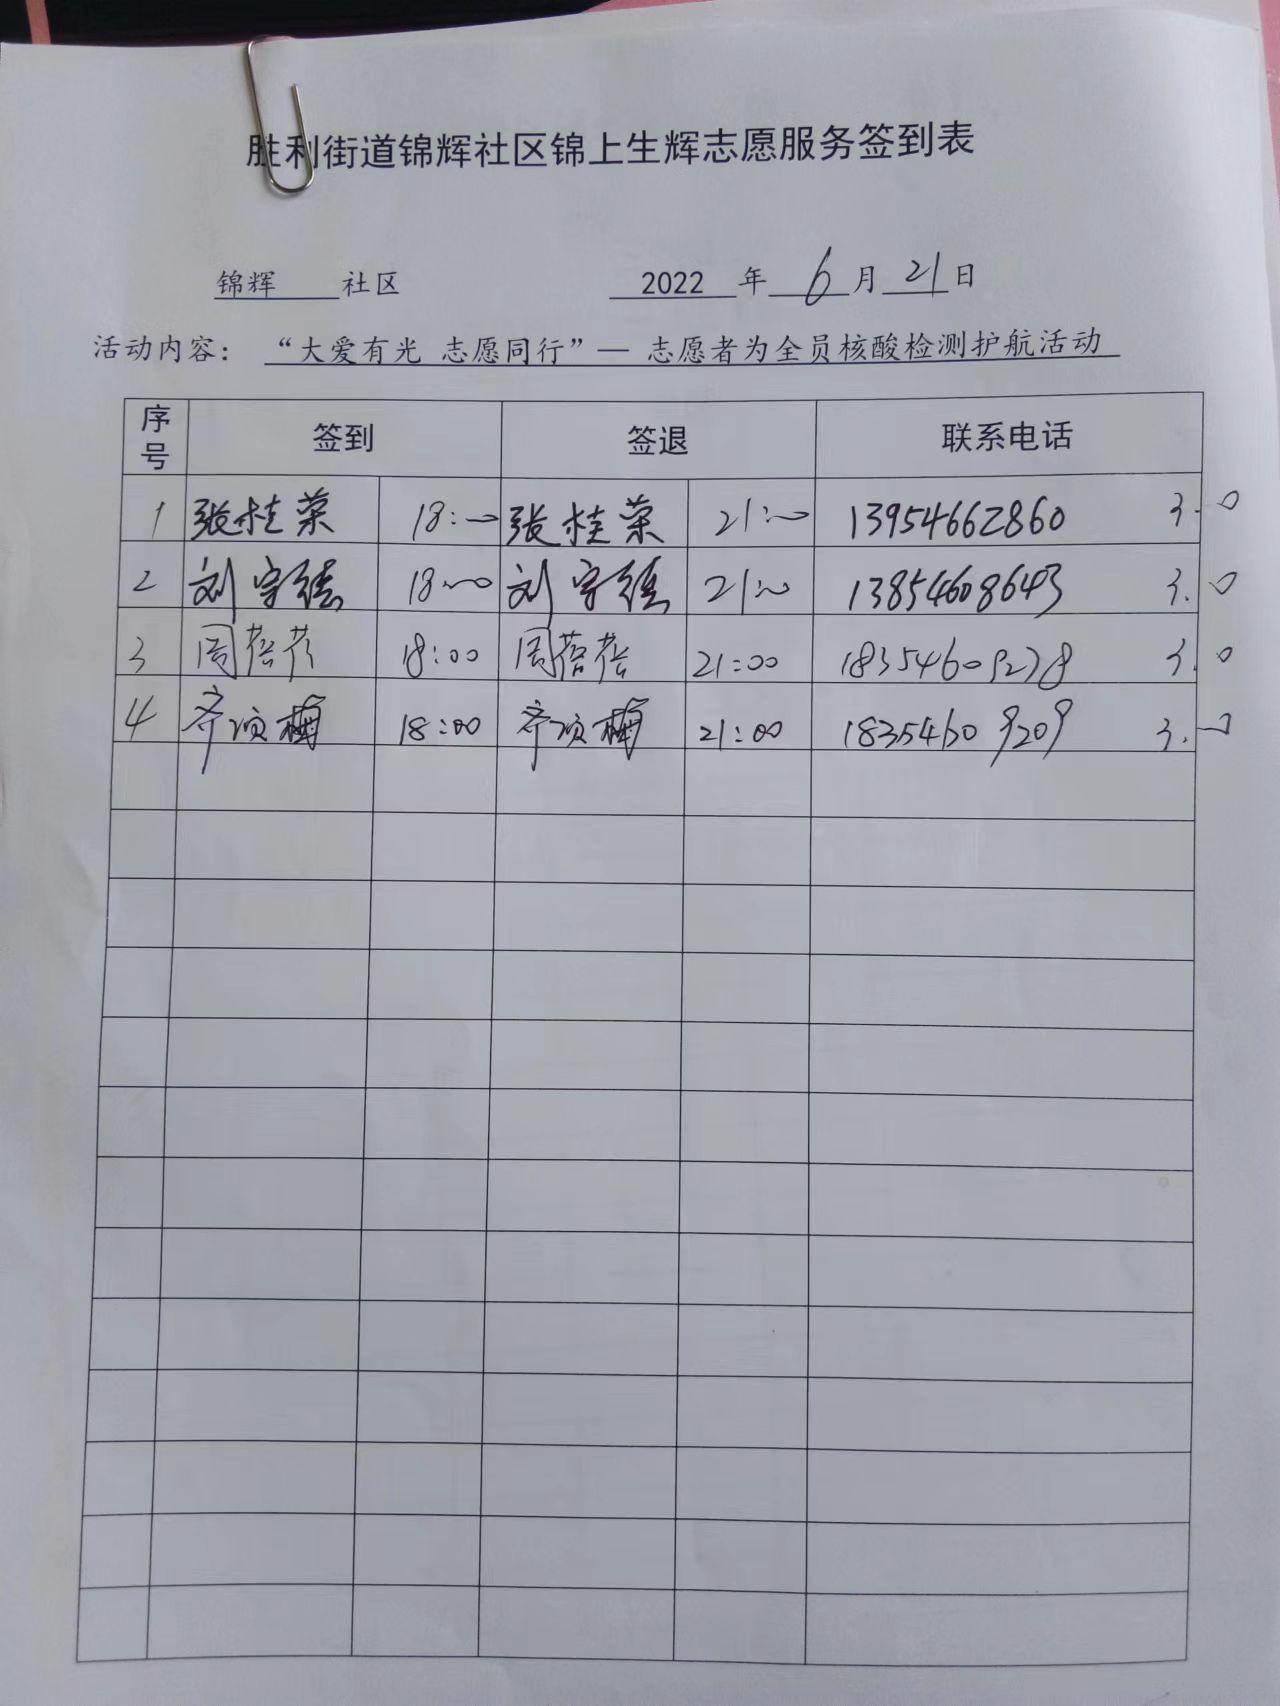 胜利街道锦辉社区锦上生辉志愿服务签到表
锦辉 社区 2022 年 6 月 21 日
活动内容： “大爱有光 志愿同行”— 志愿者为全员核酸检测护航活动
序号 签到 签退 联系电话
1 张桂荣 18:00 张桂荣 21:00 13954662860 3.0
2 刘守 18:00 刘守 21:00 13854608643 3.0
3 周蓓蓓 18:00 周蓓蓓 21:00 18354609278 3.0
4 齐项梅 18:00 齐项梅 21:00 18354609209 3.0